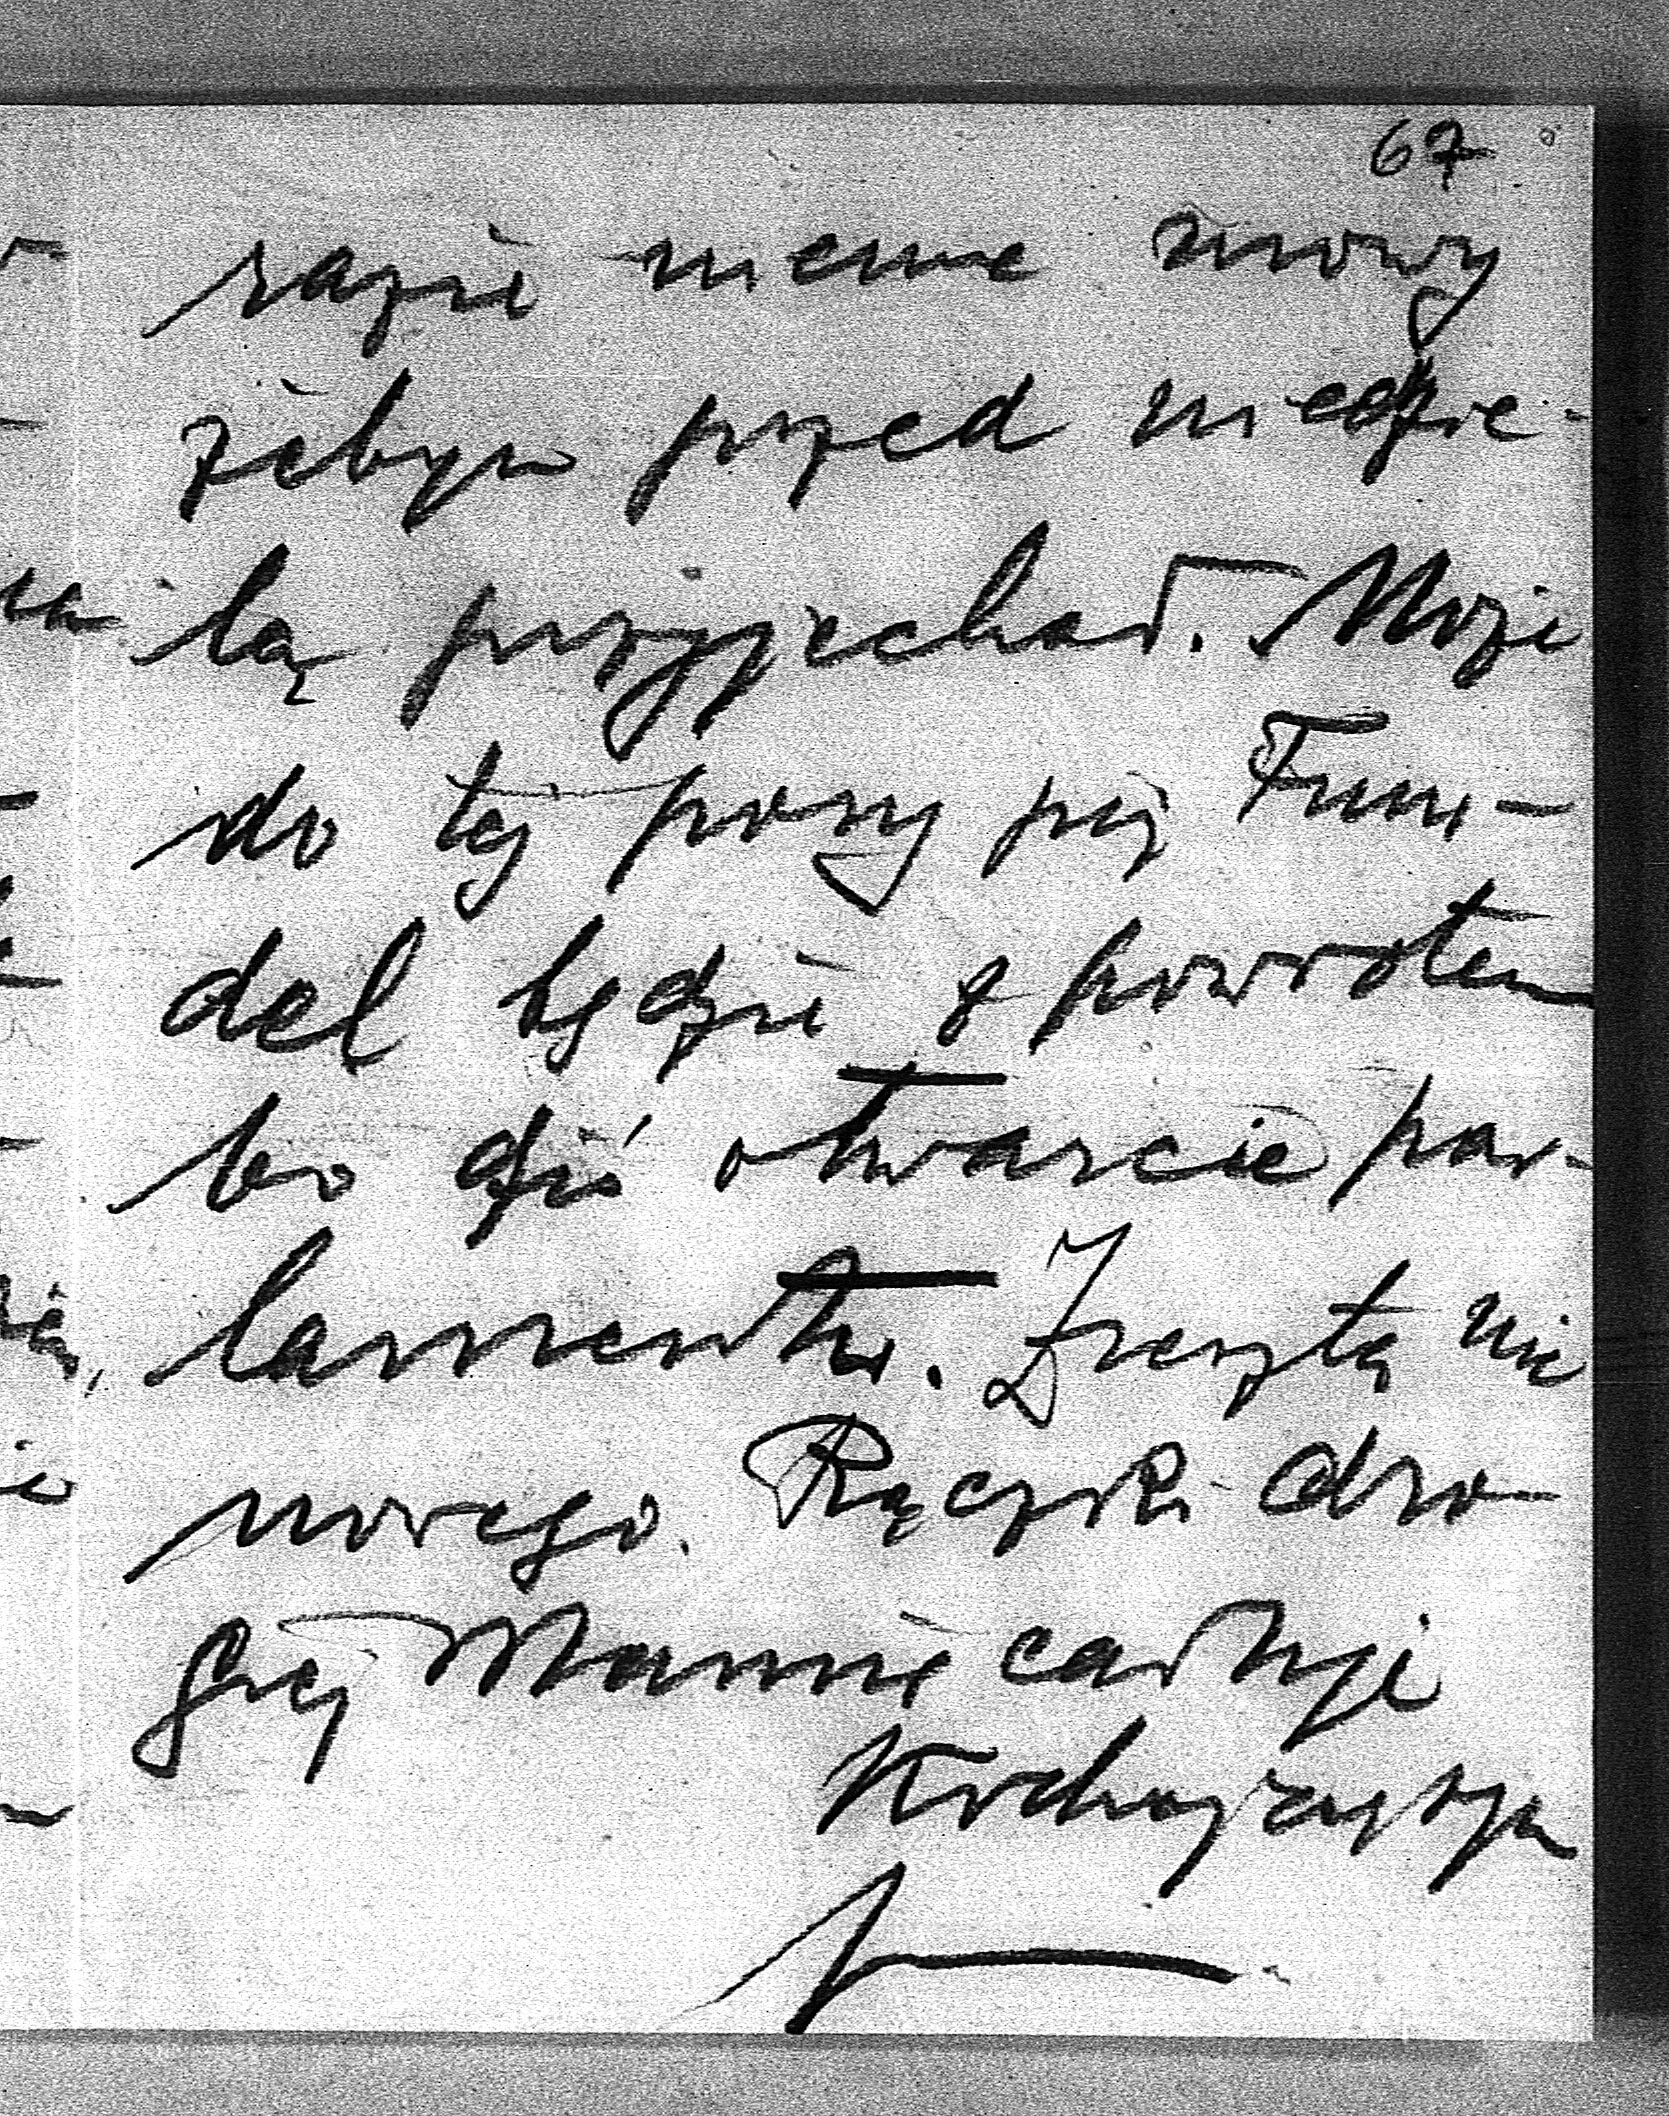 67
razie niema mowy
żebym przed niedzie-
lą przyjechał. Może
do tej pory jej Fum-
del będzie z powrotem
bo dziś otwarcie par-
lamentu. Zresztą nic
nowego. Rączki dro-
giej Mamie całuje
Kochający syn